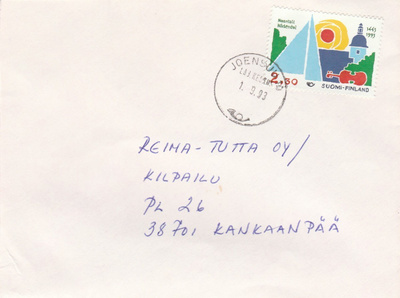 Naantali
Nådendal
1443
1993
2.30
SUOMI-FINLAND
JOENSUU
1. 9. 93
REIMA-TUTTA OY/
KILPAILU
PL 26
38701 KANKAANPÄÄ